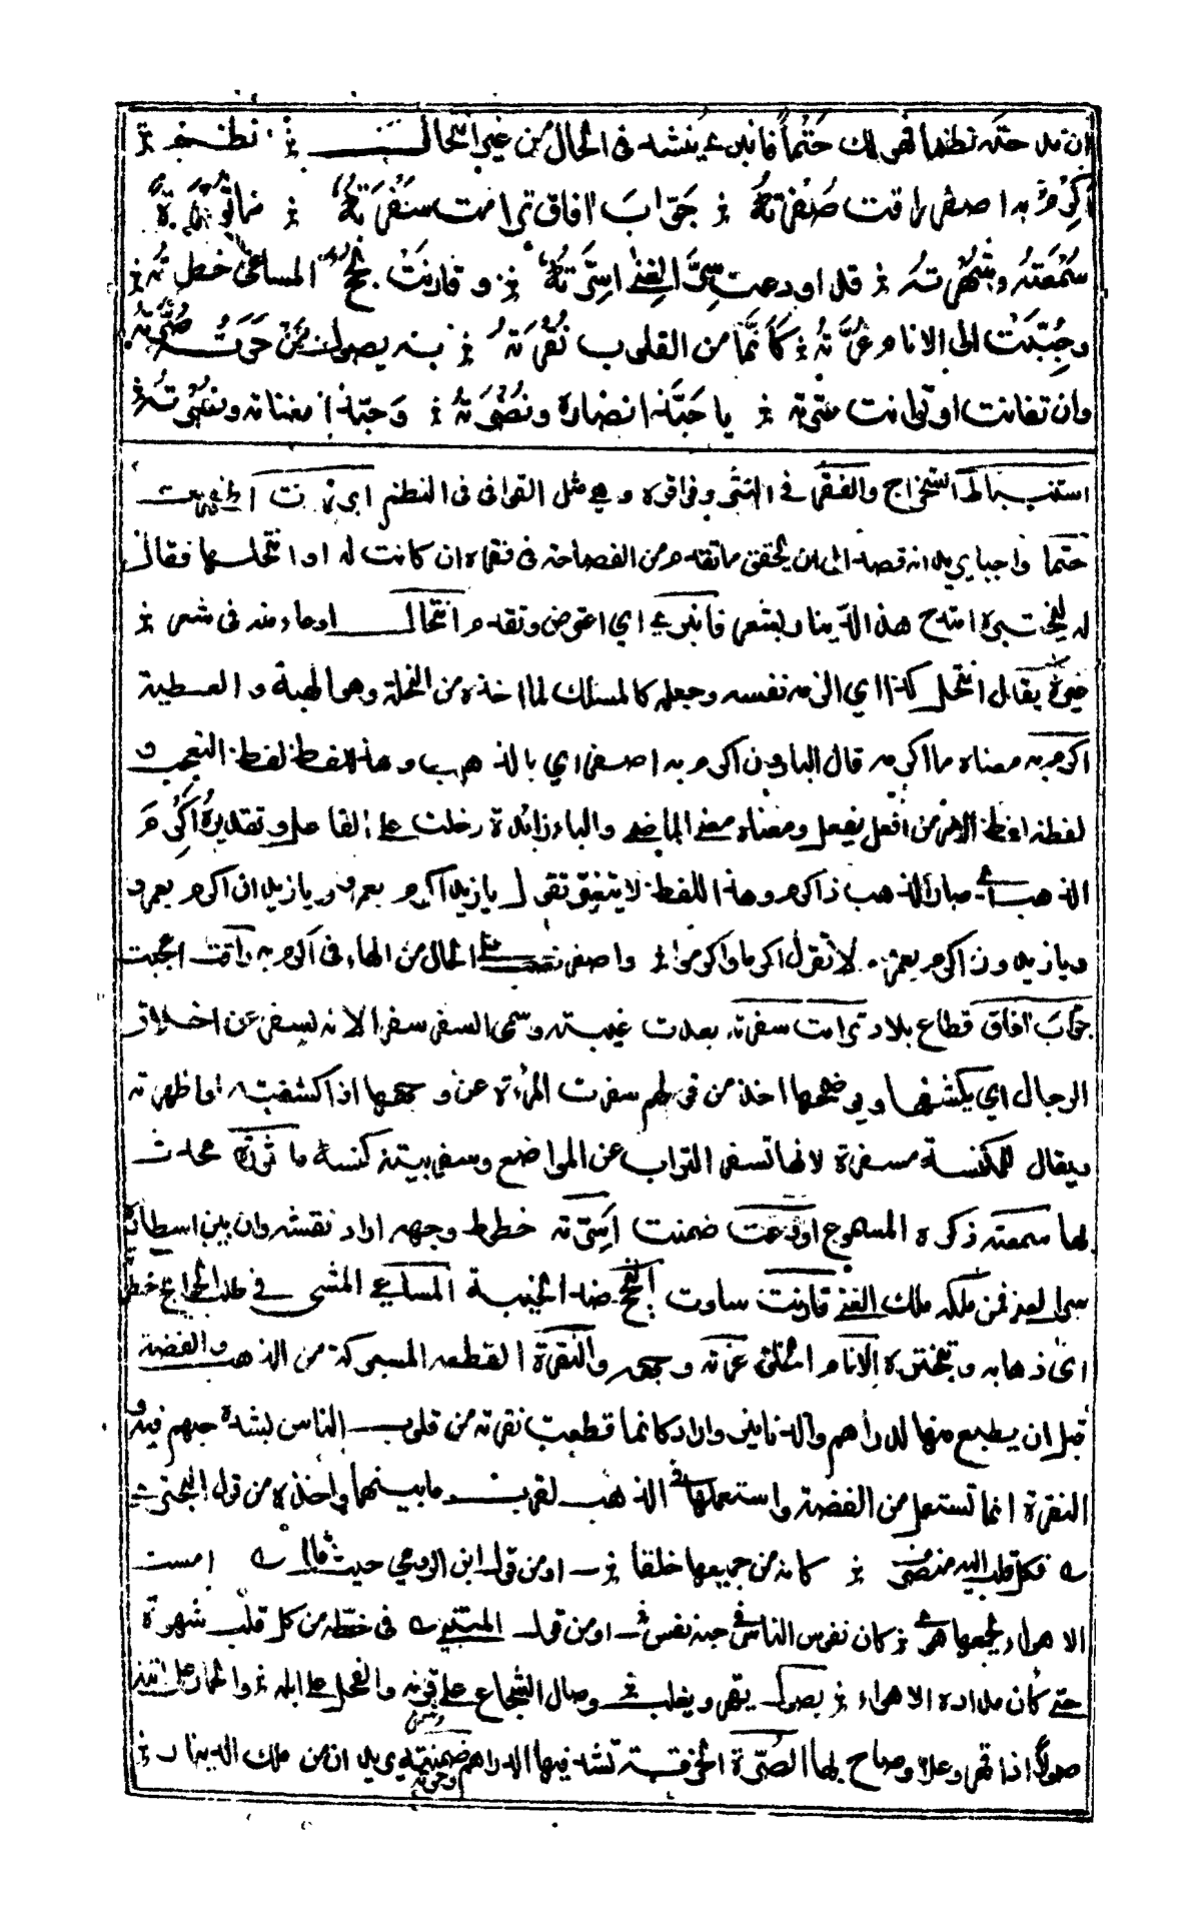 ان مدحته نظما فهو لك حتما فانبرى ينشد فى الحال من غير انتحال نظم
اكرم به اصفر راقت صفرته جواب افاق ترامت سفرته ماثورة
سمعته وشهرته قد اودعت سر الغنى اسرته وقارنت نجح المساعى خطرته
وحببت الى الانام غرته كانما من القلوب نقرته به يصول من حوته صرته
وان تفانت او توانت عترته يا حبذا نضاره ونضرته وحبذا مغناته ونصرته
استنباط استخراج والفقر فى النثر وفى اقره وهى مثل القوافى فى النظم ابرزت اظهرت
حتما واجبا يريد انه قصد الى ان يحقق ما تقدم من الفصاحة فى فقره ان كانت له او انتحلها فقال
له ليختبره امتدح هذا الدينار بشعر فانبرى اي اعترض وتقدم انتحال ادعاء منه فى شعر
غيره يقال انتحل كذا اي الزمه نفسه وجعله كالمسلك لما اخذه من النحلة وهو الهبة والعطية
اكرم به معناه ما اكرمه قال الباء من اكرم به اصفر اي بالذهب وهذا لفظ لفظ التعجب
لفظه لفظ الامر من افعل يفعل ومعناه معنى الماضى والباء زائدة دخلت على الفاعل وتقديره اكرم
الذهب اي صار الذهب ذا كرم وهذا اللفظ لا يتغير تقول يا زيد اكرم بعمرو ويا زيدان اكرم بعمرو
ويا زيدون اكرم بعمرو لا تقول اكرما واكرموا واصفر نصب على الحال من الهاء فى اكرم به راقت اعجبت
جواب افاق قطاع بلاد ترامت سفرته بعدت غيبته وسمى السفر سفرا لانه يسفر عن اخلاق
الرجال اي يكشفها ويوضحها اخذ من قولهم سفرت المرءة عن وجهها اذا كشفته او اظهرته
ويقال للمكنسة مسفرة لانها تسفر التراب عن المواضع وسفر بيته كنسه ماثورة محدث
بها سمعته ذكره المسموع اودعت ضمنت اسرته خطوط وجهه اراد نقشه وان بين اسطاره
سر الغنى فمن ملكه ملك الغنى قارنت ساوت النجح ضد الخيبة المساعى المشى فى طلب الحوائج خطرته
اى ذهابه وتبختره الانام الخلق غرته وجهه والنقرة القطعه المسبوكة من الذهب والفضة
قبل ان يطبع منها الدراهم والدنانير واراد كانما قطعت نقرته من قلوب الناس لشدة حبهم فيه و
النقرة انما تستعمل من الفضة واستعملها فى الذهب لقرب ما بينهما واخذه من قول البحترى
فكل قلب اليه منصرف كانه من جميعها خلقا او من قول ابن الرومى حيث قال امست
الاهواء يجمعها هوى كان نفوس الناس فى حبه نفس او من قول المتنبى فى خطه من كل قلب شهوة
حتى كان مداده الاهواء يصول يقهر ويغلب وصال الشجاع على قرنه والفحل على ابله والحمار على اتنه
صولا اذا قهر وعلا وصاح بها الصرة الخرقة تشد فيها الدراهم ضمنته وحوته يريد ان من ملك الدينار